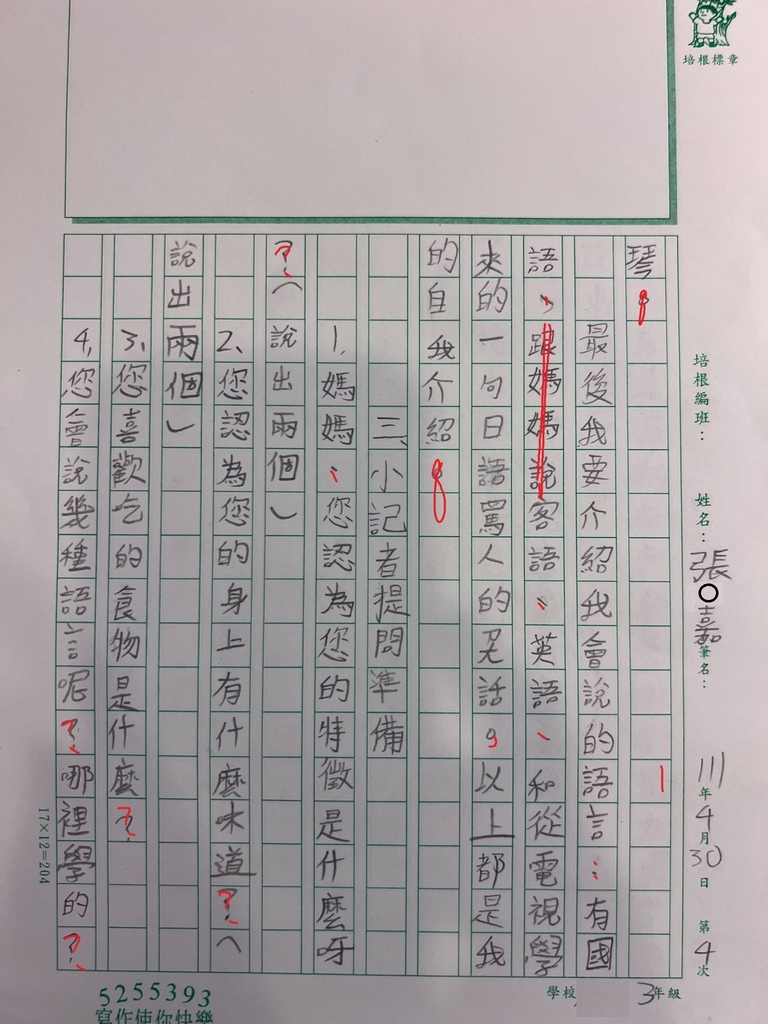 培根標章
培根編班：
姓名：張○嘉
筆名：
111年4月30日 第4次
學校
3年級
琴。
最後我要介紹我會說的語言：有國
語、跟媽媽說客語、英語、和從電視學
來的一句日語罵人的咒話。以上都是我
的自我介紹。
三、小記者提問準備
1、媽媽：您認為您的特徵是什麼呀
？（說出兩個）
2、您認為您的身上有什麼味道？（
說出兩個）
3、您喜歡吃的食物是什麼？
4、您會說幾種語言呢？哪裡學的？
17×12=204
5255393
寫作使你快樂